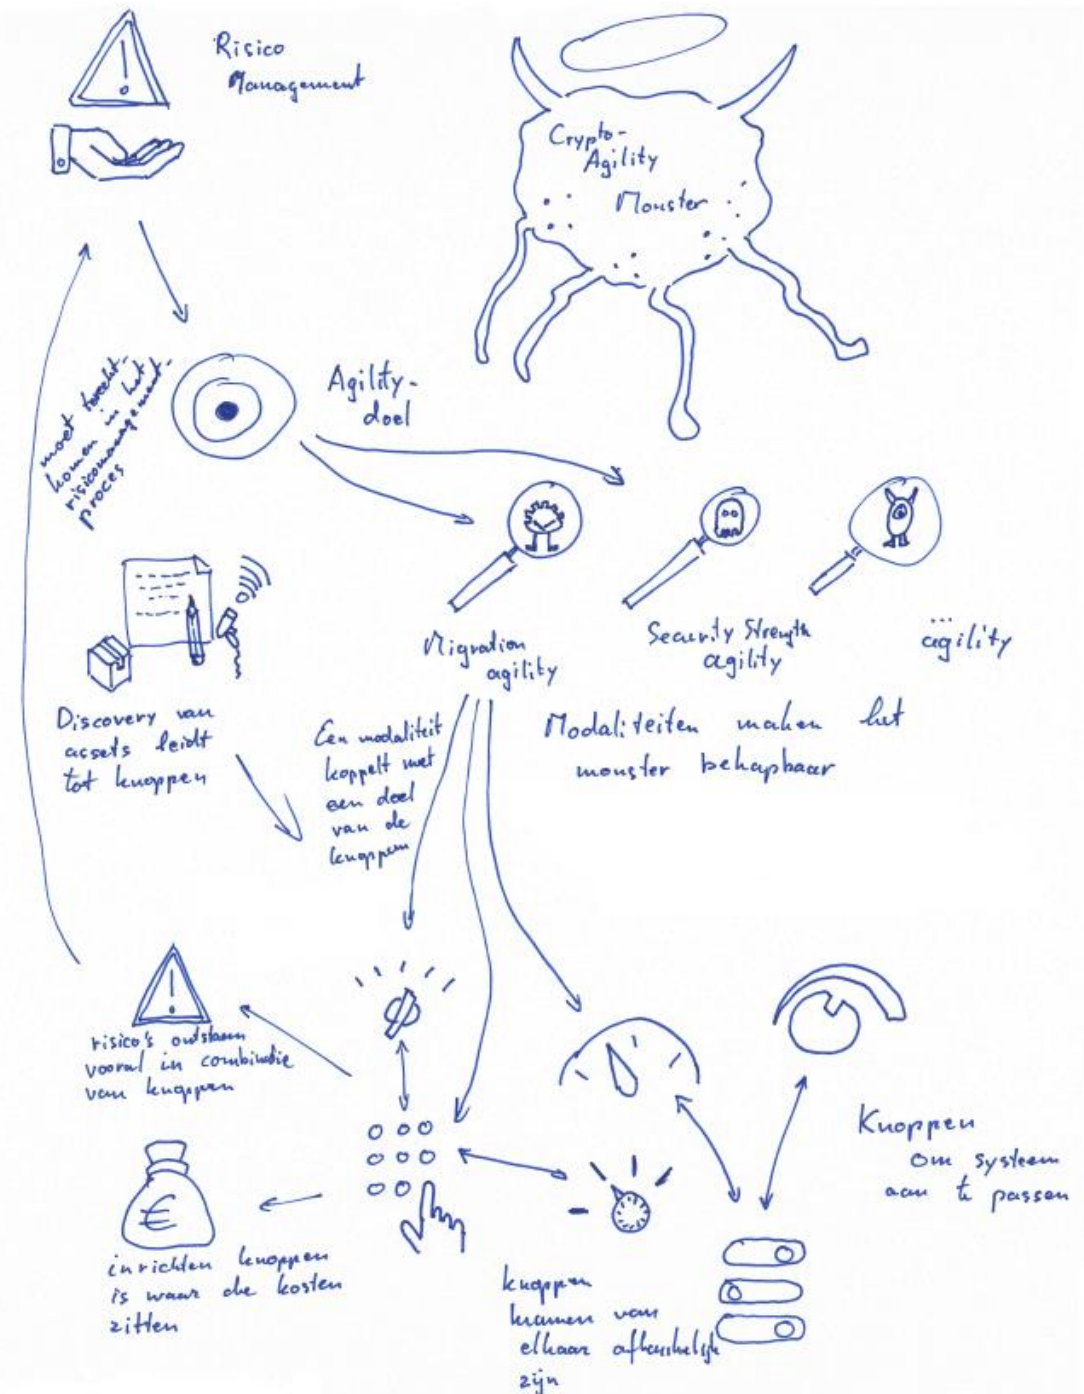 Risico
Management
Crypto-
Agility
Monster
moet terecht-
komen in het
risicomanagement-
proces
Agility-
doel
Migration
agility
Security Strength
agility
...
agility
Modaliteiten maken het
monster behapbaar
Discovery van
assets leidt
tot knoppen
Een modaliteit
koppelt met
een deel
van de
knoppen
risico's ontstaan
vooral in combinatie
van knoppen
Knoppen
om systeem
aan te passen
€
inrichten knoppen
is waar de kosten
zitten
knoppen
kunnen van
elkaar afhankelijk
zijn